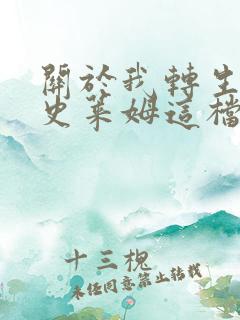 關於我轉生
史萊姆這檔
十三槐
未經同意禁止轉載